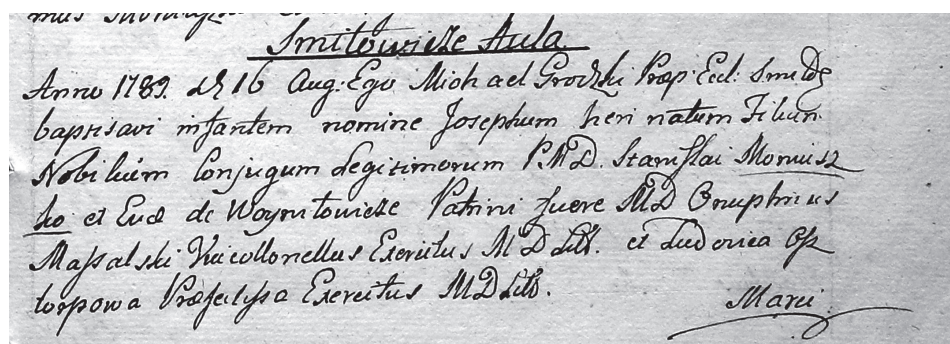 Smiłowicze Aula
Anno 1789. d 16 Aug: Ego Michael Grodzki Præp: Eccl: Smil
baptisavi infantem nomine Josephum heri natum Filium
Nobilium Conjugum legitimorum P.M.D. Stanislai Moniusz
ko et Evæ de Woyniłowicze Patrini fuere MD Onuphrius
Massalski Vicollonellus Exercitus M D Litt. et Ludovica
torpowa Præfectissa Exercitus MD Litt.